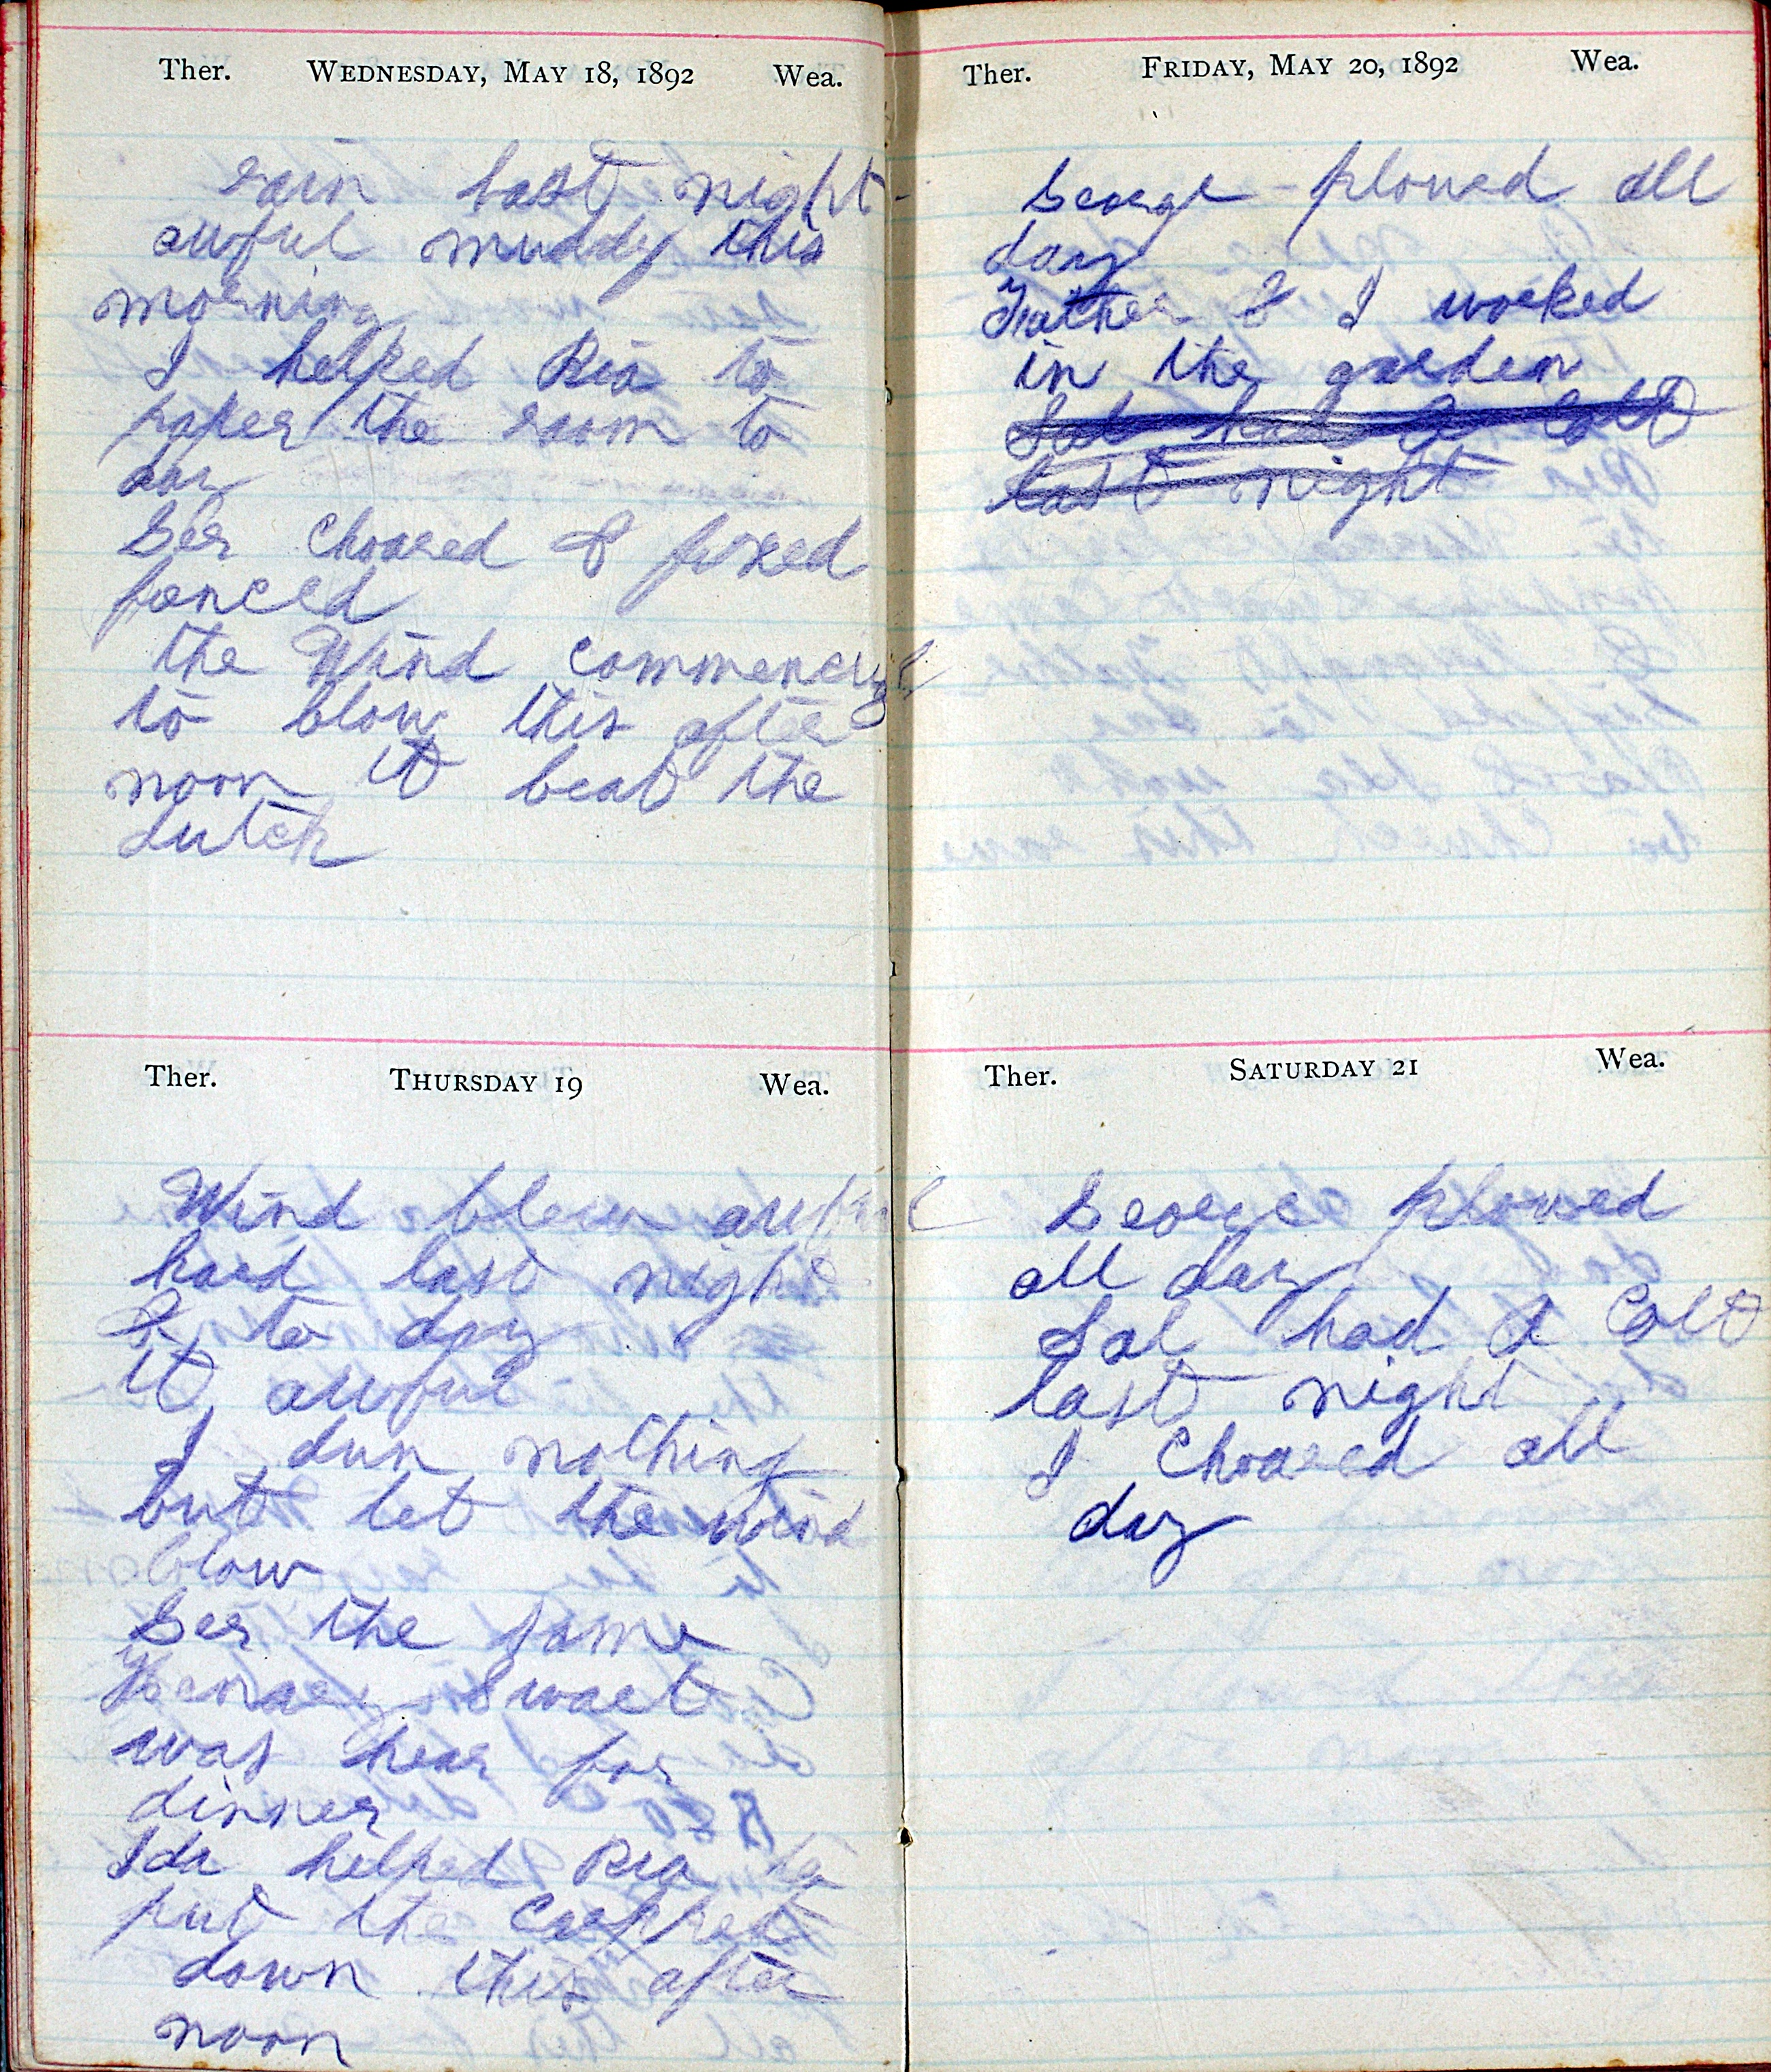 Ther. WEDNESDAY, MAY 18, 1892 Wea.
rain last night
awful muddy this
morning
I helped Ria to
paper the room to
day
Ger choared & fixed
fenced
the Wind commencyed
to blow this after
noon it beat the
dutch
Ther. THURSDAY 19 Wea.
Wind blew awful
hard last night
& to day
it awful
I dun nothing
but let the wind
blow
Ger the same
Swaet
was hear for
dinner
Ida helped Ria to
put the carppet
down this after
noon
Ther. FRIDAY, MAY 20, 1892 Wea.
George plowed all
day
Father & I worked
in the garden
Sal had a Colt
last night
Ther. SATURDAY 21 Wea.
George plowed
all day
Sal had a Colt
last night
I Choared all
day